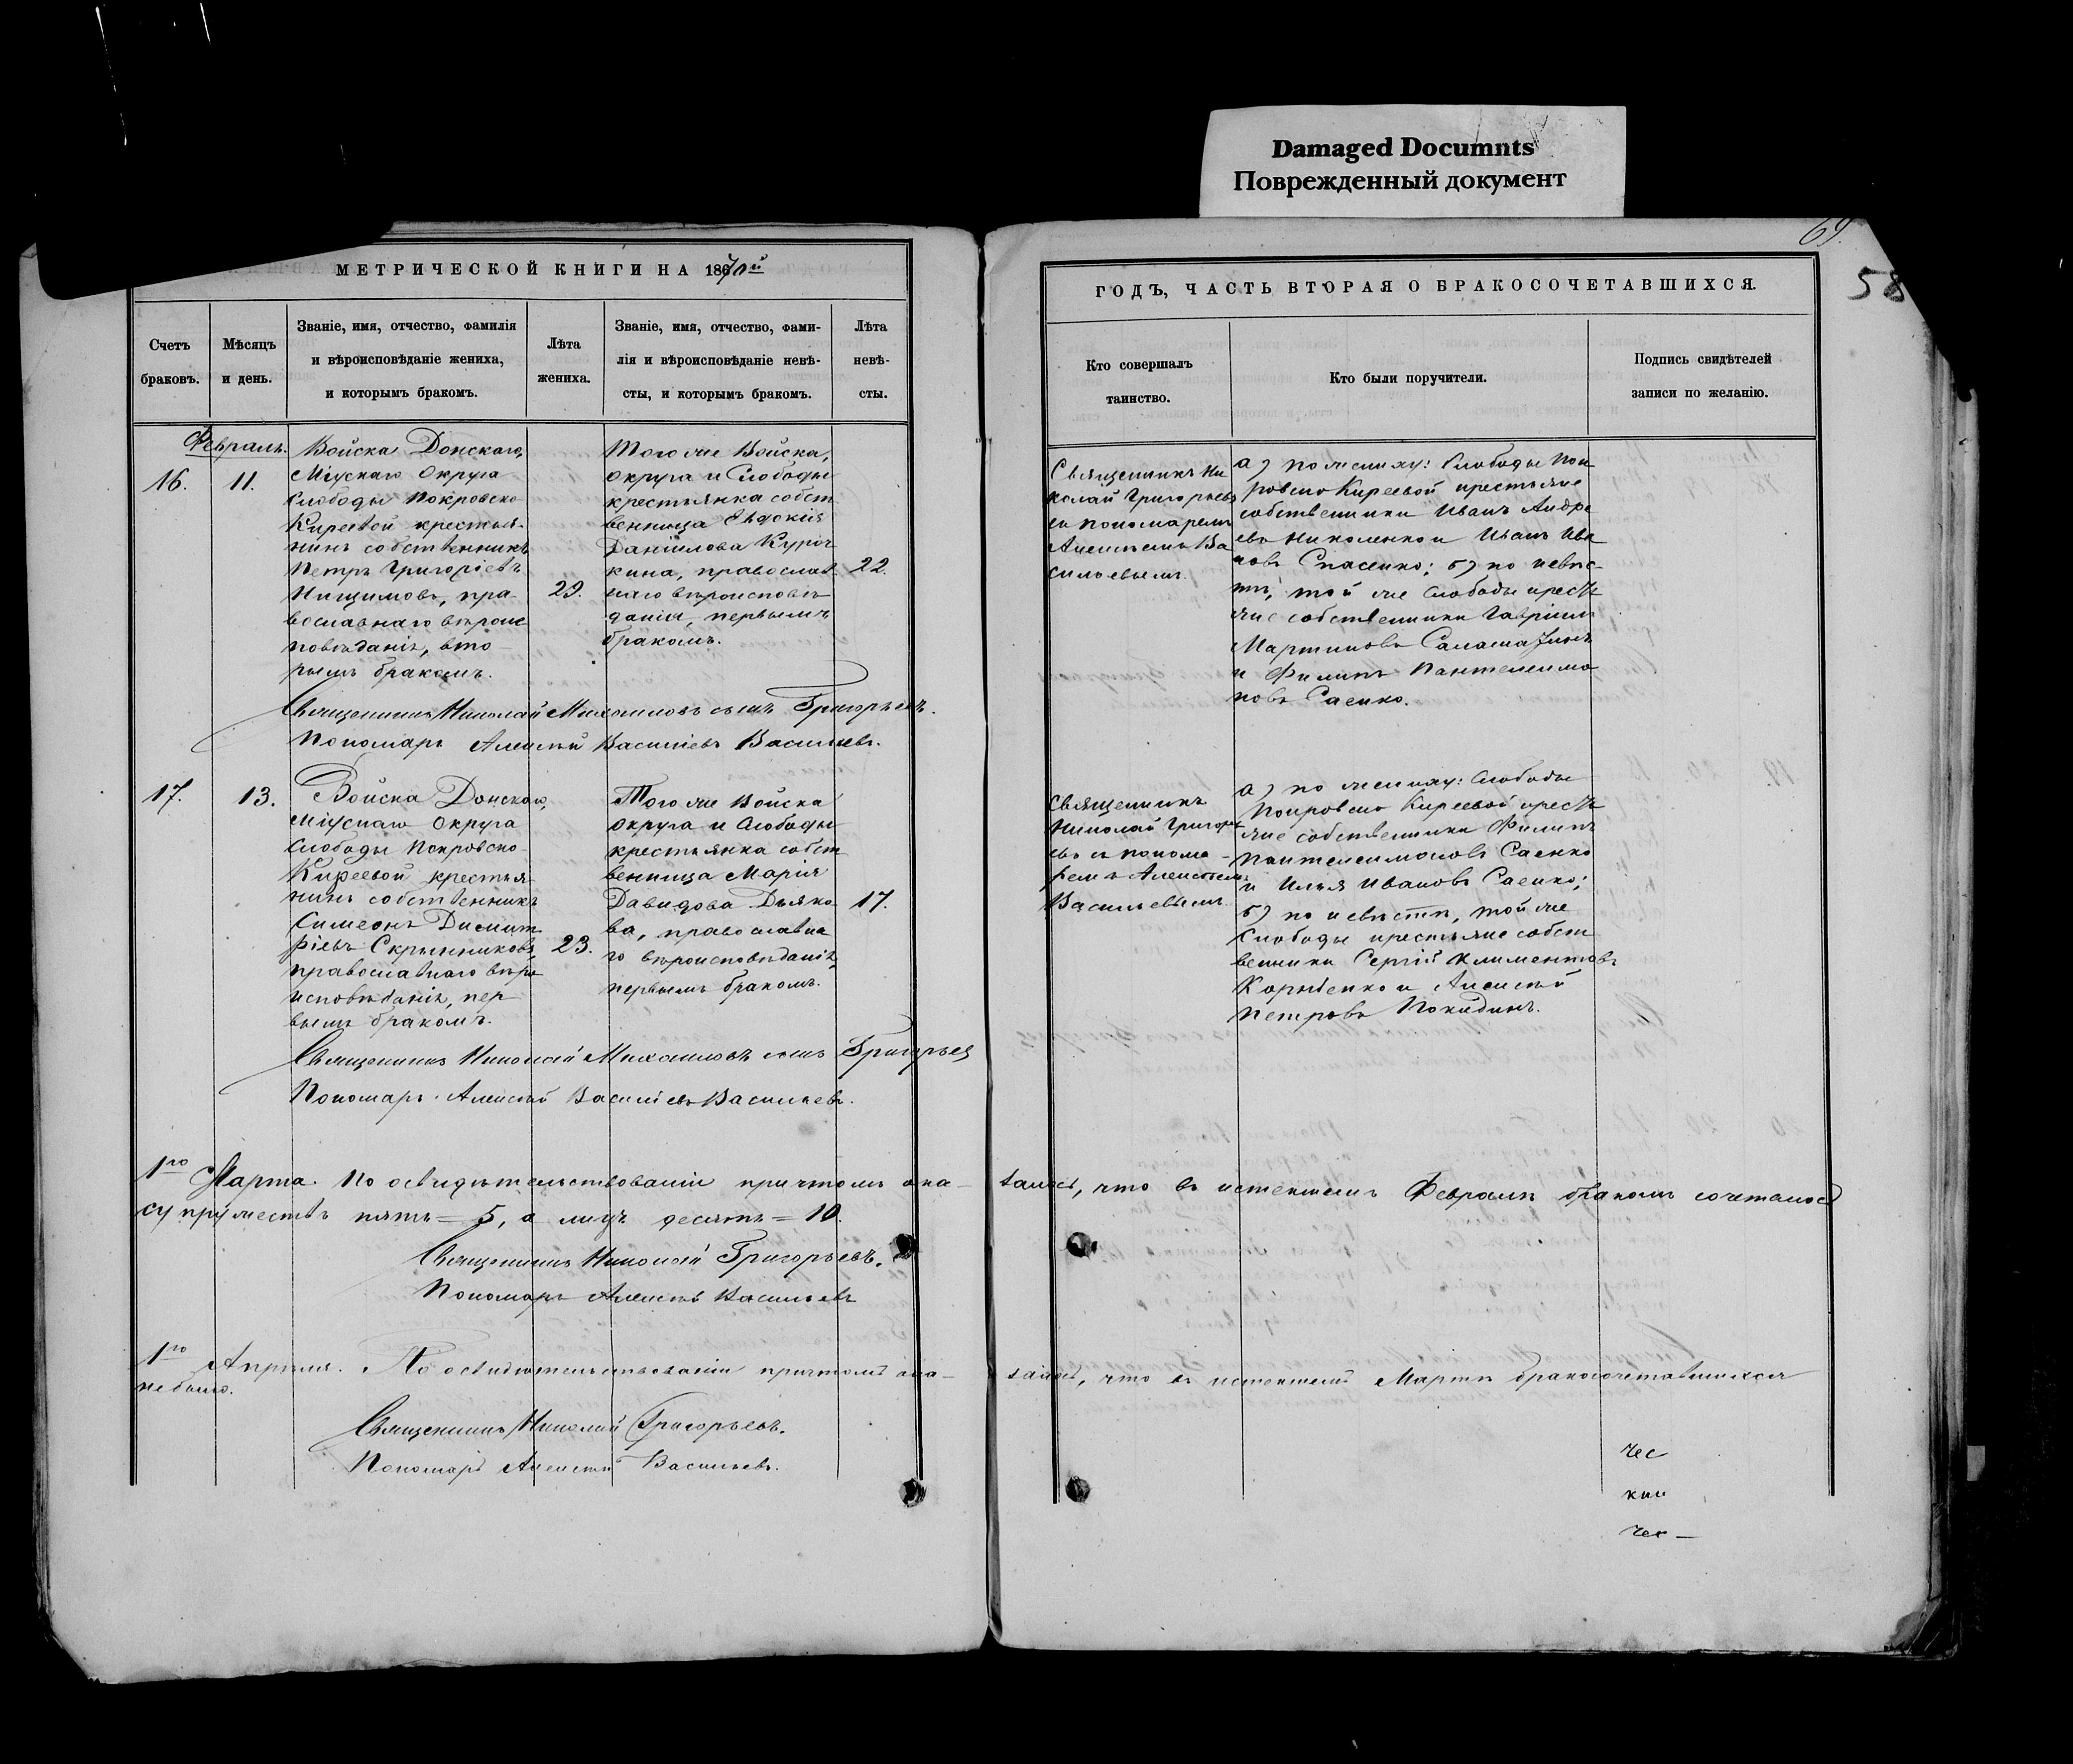 Damaged Documnts
Поврежденный документ
69.
58
МЕТРИЧЕСКОЙ КНИГИ НА 1870й
Счетъ браковъ.
Мѣсяцъ и день.
Званіе, имя, отчество, фамилія
и вѣроисповѣданіе жениха,
и которымъ бракомъ.
Лѣта жениха.
Званіе, имя, отчество, фами-
лія и вѣроисповѣданіе невѣ-
сты, и которымъ бракомъ.
Лѣта
невѣ-
сты.
Февраль.
16.
11.
Войска Донскаго,
Міускаго Округа
Слободы Покровско
Киреевой крестья-
нинъ собственникъ
Петръ Григоріевъ
Нищимовъ, пра-
вославнаго вѣроис
повѣданія, вто-
рымъ бракомъ.
29.
Того же Войска,
Округа и Слободы
крестьянка собст
венница Евдокія
Даніилова Куроч
кина, православ
наго вѣроисповѣ
данія, первымъ
бракомъ.
22.
Священникъ Николай Михаиловъ сынъ Григорьевъ.
Пономарь Алексѣй Василіевъ Васильевъ.
17.
13.
Войска Донскаго,
Міускаго Округа
Слободы Покровско-
Киреевой крестья
нинъ собственникъ
Симеонъ Димит
ріевъ Скрынниковъ,
православнаго вѣро
исповѣданія, пер
вымъ бракомъ.
23.
Того же Войска
Округа и Слободы
крестьянка собст
венница Марія
Давидова Дьяко
ва, православна
го вѣроисповѣданія,
первымъ бракомъ.
17.
Священникъ Николай Михаиловъ сынъ Григорьев
Пономарь Алексѣй Василіевъ Васильевъ.
1го Марта. По освидѣтельствованіи причтомъ ока-
супружествъ пять = 5, а лицъ десять = 10.
Священникъ Николай Григорьевъ.
Пономарь Алексѣй Васильевъ
1го Апрѣля. По освидѣтельствованіи причтомъ ока-
не было.
Священникъ Николай Григорьевъ.
Пономарь Алексѣй Васильевъ.
ГОДЪ, ЧАСТЬ ВТОРАЯ О БРАКОСОЧЕТАВШИХСЯ.
Кто совершалъ
таинство.
Кто были поручители.
Подпись свидѣтелей
записи по желанію.
Священникъ Ни
колай Григорьевъ
съ пономаремъ
Алексѣемъ Ва
сильевымъ.
а) по жениху: Слободы Пок
ровско Киреевой крестьяне
собственники Иванъ Андре
евъ Николенко и Иванъ Ива
новъ Спасенко; б) по невѣс-
тѣ, той же Слободы кресть
яне собственники Гавріилъ
Мартиновъ
и Филипъ Пантелеимо
новъ Саенко.
Священникъ
Николай Григорь
евъ съ понома-
ремъ Алексѣемъ
Васильевымъ
а) по жениху: Слободы
Покровско Киреевой кресть
яне собственники Филипъ
Пантелеимоновъ Саенко
и Илья Ивановъ Саенко;
б) по невѣстѣ, той же
Слободы крестьяне собст
венники Сергій Климентовъ
Корніенко и Алексѣй
Петровъ Покидинъ.
залось, что въ истекшемъ Февралѣ бракомъ сочеталось
залось, что въ истекшемъ Мартѣ бракосочетавшихся
чес
кни
чес —